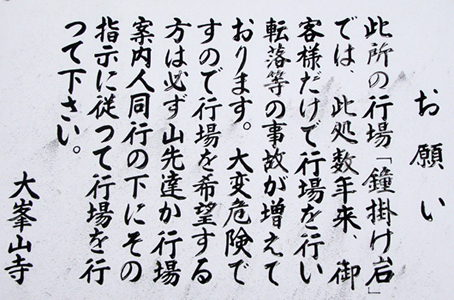 お願い
此所の行場「鐘掛け岩」
では、此処数年来、御
客様だけで行場を行い
転落等の事故が増えて
おります。大変危険で
すので行場を希望する
方は必ず山先達か行場
案内人同行の下にその
指示に従つて行場を行
つて下さい。
大峯山寺